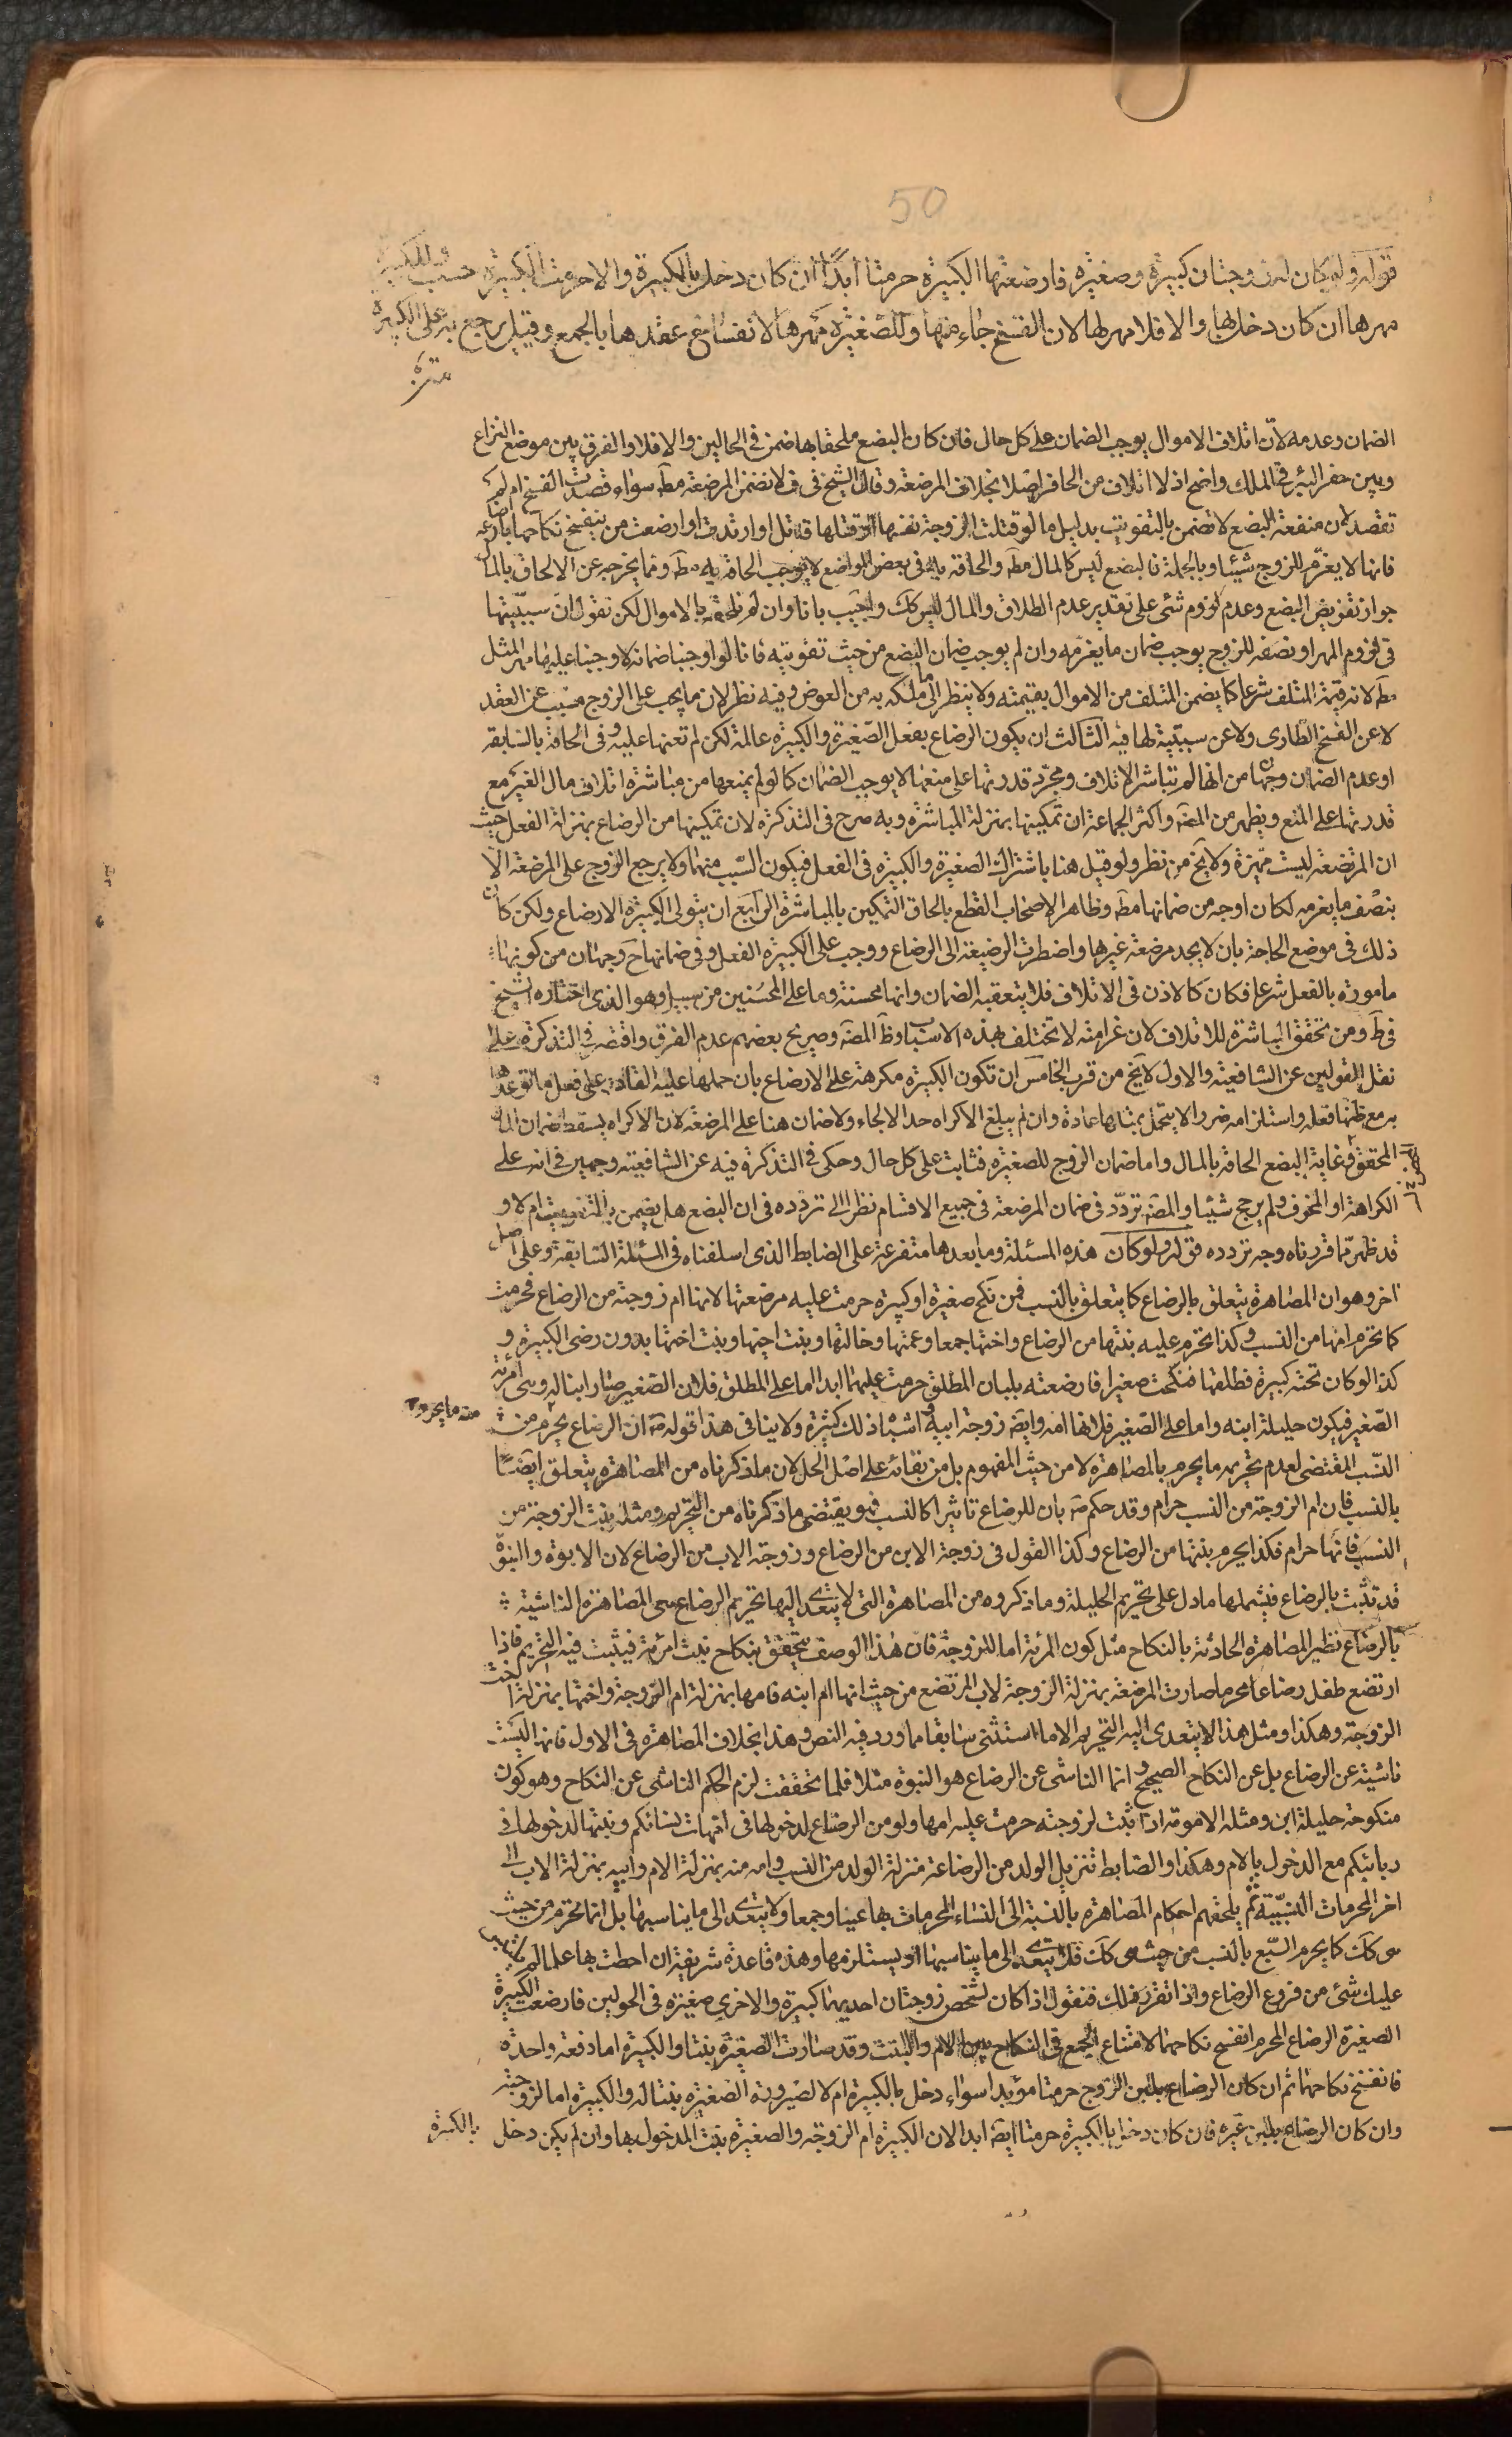 50
قوله ولو كان له زوجتان كبيرة وصغيرة فارضعتها الكبيرة حرمتا ابدًا ان كان دخل بالكبيرة والا حرمت الكبيرة حسب وللكبيرة
مهرها ان كان دخل بها والا فلا مهر لها لان الفسخ جاء منها وللصغيرة مهرها لانفساخ عقدها بالجمع وقيل يرجع به على الكبيرة
الضمان وعدمه لانّ اتلاف الاموال يوجب الضمان على كل حال فان كان البضع ملحقا بها ضمن فى الحالين والا فلا والفرق بين موضع النزاع
وبين حفر البئر فى الملك واضح اذ لا اتلاف من الحافر اصلا بخلاف المرضعة وقال الشيخ فى ف لا تضمن المرضعة مطـ سواء قصدت الفسخ ام لم
تقصد لان منفعة البضع لا تضمن بالتفويت بدليل ما لو قتلت الزوجة نفسها او قتلها قاتل او ارتدت او ارضعت من ينفسخ نكاحها بارضاعه
فانها لا يغرم للزوج شيئا وبالجملة فالبضع ليس كالمال مطـ والحاقه به فى بعض المواضع لا يوجب الحاقه به مطـ ومما يخرجه عن الالحاق بالمال
جواز تفويض البضع وعدم لزوم شئ على تقدير عدم الطلاق والمال ليس كك واجيب بانا وان لم نلحقه بالاموال لكن نقول ان سببيّتها
فى لزوم المهر او نصفه للزوج يوجب ضمان ما يغرمه وان لم يوجب ضمان البضع من حيث تفويته فانا لو اوجبنا ضمانه لاوجبنا عليها مهر المثل
مطـ لانه قيمة المتلف شرعا كما يضمن المتلف من الاموال بقيمته ولا ينظر الى ما ملكه به من العوض وفيه نظر لان ما يجب على الزوج مسبب عن العقد
لا عن الفسخ الطارى ولا عن سببيّة لها فيه الثالث ان يكون الرضاع بفعل الصغيرة والكبيرة عالمة لكن لم تعنها عليه وفى الحاقه بالسابقه
او عدم الضمان وجها من انها لم تباشر الاتلاف ومجرّد قدرتها على منعها لا يوجب الضمان كما لو لم يمنعها من مباشرة اتلاف مال الغير مع
قدرتها على المنع ويظهر من المصـ واكثر الجماعة ان تمكينها بمنزلة المباشرة وبه صرح فى التذكرة لان تمكينها من الرضاع بمنزلة الفعل حيث
ان المرتضعة ليست مميّزة ولا يخ من نظر ولو قيل هنا باشتراك الصغيرة والكبيرة فى الفعل فيكون السّبب منهما ولا يرجع الزوج على المرضعة الّا
بنصف ما يغرمه لكان اوجه من ضمانها مطـ وظاهر الاصحاب القطع بالحاق التمكين بالمباشرة الرابع ان يتولى الكبيرة الارضاع ولكن كان
ذلك فى موضع الحاجة بان لا يجد مرضعة غيرها واضطرت الرضيعة الى الرضاع ووجب على الكبيرة الفعل وفى ضمانها ح وجهان من كونها
مامورة بالفعل شرعا فكان كالاذن فى الاتلاف فلا يتعقبه الضمان وانها محسنة وما على المحسنين من سبيل وهو الذى اختاره الشيخ
فى ط ومن تحقق المباشرة للاتلاف لان غرامته لا تختلف بهذه الاسباب وظـ المصـ وصريح بعضهم عدم الفرق واقتصر فى التذكرة على
نقل القولين عن الشافعية والاول لا يخ من قرب الخامس ان تكون الكبيرة مكرهة على الارضاع بان حملها عليه القادر على فعل ما توعدها
به مع ظنها فعله واستلزامه ضررا لا يتحمل بمثلها عادة وان لم يبلغ الاكراه حد الالجاء ولا ضمان هنا على المرضعة لان الاكراه يسقط ضمان المال
المحقق فغاية البضع الحاقه بالمال واما ضمان الزوج للصغيرة فثابت على كل حال وحكى فى التذكرة فيه عن الشافعية وجهين فى انه على
الكراهة او المخوف ولم يرجح شيئا والمصـ تردّد فى ضمان المرضعة فى جميع الاقسام نظرا الى تردده فى ان البضع هل يضمن بالتفويت ام لا و
قد ظهر ممّا قررناه وجه تردده قوله ولو كان هذه المسئلة وما بعدها متفرعة على الضابط الذى اسلفناه فى المسئلة السابقة وعلى اصل
اخر وهو ان المصاهرة يتعلق بالرضاع كما يتعلق بالنسب فمن نكح صغيرة او كبيرة حرمت عليه مرضعتها لانها ام زوجته من الرضاع فحرمت
كما تحرم امها من النسب وكذا تحرم عليه بنتها من الرضاع واختها جمعا وعمتها وخالتها وبنت اخيها وبنت اختها بدون رضى الكبيرة و
كذا لو كان تحته كبيرة فطلقها فنكحت صغيرا فارضعته بلبان المطلق حرمت عليهما ابدا اما على المطلق فلان الصغير صار ابنا له وهى امراة
الصّغير فيكون حليلة ابنه واما على الصغير فلانها امه وايضـ زوجة ابيه واشباه ذلك كثيرة ولا ينافى هذا قوله صـ ان الرضاع يحرم من
منه ما يحرم
النسب المقتضى لعدم تحريم ما يحرم بالمصاهرة لا من حيث المفهوم بل من بقائه على اصل الحل لان ما ذكرناه من المصاهرة يتعلق ايضـًا
بالنسب فان ام الزوجة من النسب حرام وقد حكم صـ بان للرضاع تاثيرا كالنسب فهو يقتضى ما ذكرناه من التحريم ومثله بنت الزوجة من
النسب فانها حرام فكذا يحرم بنتها من الرضاع وكذا القول فى زوجة الابن من الرضاع وزوجة الاب من الرضاع لان الابوة والبنوّة
قد تثبت بالرضاع فيشملها ما دل على تحريم الحليلة وما ذكروه من المصاهرة التى لا يتعدى اليها تحريم الرضاع هى المصاهرة الناشئة
بالرضاع نظير المصاهرة الحادثة بالنكاح مثل كون المرأة اما للزوجة فان هذا الوصف يتحقق بنكاح بنت امرأة فيثبت فيه التحريم فاذا
ارتضع طفل رضاعا محرما صارت المرضعة بمنزلة الزوجة لاب المرتضع من حيث انها ام ابنه فامها بمنزلة ام الزوجة واختها بمنزلة اخت
الزوجة وهكذا ومثل هذا لا يتعدى اليه التحريم الا ما استثنى سابقا مما ورد فيه النص وهذا بخلاف المصاهرة فى الاول فانها ليست
ناشئة عن الرضاع بل عن النكاح الصحيح وانما الناشى عن الرضاع هو البنوّة مثلا فلما تحققت لزم الحكم الناشى عن النكاح وهو كون
منكوحته حليلة ابن ومثله الامومة اذا ثبت لزوجته حرمت عليه امها ولو من الرضاع لدخولها فى امهات نسائكم وبنتها لدخولها فى
ربائبكم مع الدخول بالام وهكذا والضابط تنزيل الولد من الرضاعة منزلة الولد من النسب وامه منه بمنزلة الام وابيه بمنزلة الاب الى
اخر المحرمات النسبيّة ثم يلحقهم احكام المصاهرة بالنسبة الى النساء المحرمات بها عينا وجمعا ولا يتعدى الى ما يناسبها بل انما تحرم من حيث
هى كك كما يحرم السّبع بالنسب من حيث هى كك فلا يتعدى الى ما يناسبها او يستلزمها وهذه قاعدة شريفة ان احطت بها علما لم يشتبه
عليك شئ من فروع الرضاع واذا تقرر ذلك فنقول اذا كان لشخص زوجتان احديهما كبيرة والاخرى صغيرة فى الحولين فارضعت الكبيرة
الصغيرة الرضاع المحرم انفسخ نكاحهما لامتناع الجمع فى النكاح بين الام والبنت وقد صارت الصغيرة بنتا والكبيرة اما دفعة واحدة
فانفسخ نكاحهما ثم ان كان الرضاع بلبن الزوج حرمتا مؤبدا سواء دخل بالكبيرة ام لا لصيرورة الصغيرة بنتا له والكبيرة اما لزوجته
وان كان الرضاع بلبن غيره فان كان دخل بالكبيرة حرمتا ايضـ ابدا لان الكبيرة ام الزوجة والصغيرة بنت المدخول بها وان لم يكن دخل
بالكبيرة